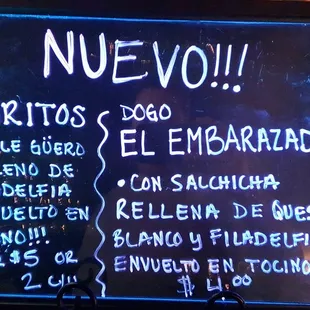 NUEVO!!!
RITOS
LE GÜERO
ENO DE
DELFIA
UELTO EN
NO!!!
$5 OR
2 C/U
DOGO
EL EMBARAZAD
• CON SALCHICHA
RELLENA DE QUES
BLANCO Y FILADELFI
ENVUELTO EN TOCINO
$ 4.00